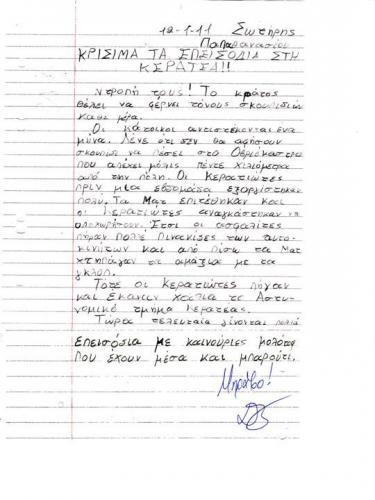 12-1-11 Σωτήρης
Παπαθανασίου
ΚΡΙΣΙΜΑ ΤΑ ΕΠΕΙΣΟΔΙΑ ΣΤΗ
ΚΕΡΑΤΕΑ!!
Ντροπή τους! Το κράτος
θέλει να φέρνει τόνους σκουπιδιών
κάθε μέρα.
Οι κάτοικοι αντιστέκονται ένα
μήνα. Λένε ότι δεν θα αφήσουν
σκουπίδι να πέσει στο Οβριόκαστρο
που απέχει μόλις πέντε χιλιόμετρα
από την πόλη. Οι Κερατιώτες
πριν μια εβδομάδα εξοργίστηκαν
πολύ. Τα Ματ επιτέθηκαν και
οι Κερατιώτες αναγκάστηκαν να
οπλοχωρήσουν. Έτσι οι ασφαλίτες
πήραν πολλές πινακίδες των αυτο-
κινήτων και από πίσω τα Ματ
χτηπάγαν τα αμάξια με τα
γκλοπ.
Τότε οι Κερατιώτες πήγαν
και έκαναν χάλια το Αστυ-
νομικό τμήμα Κερατέας.
Τώρα τελευταία γίνονται πολλά
επεισόδια με καινούριες μολότοφ
που έχουν μέσα και μπαρούτι.
Μπράβο!